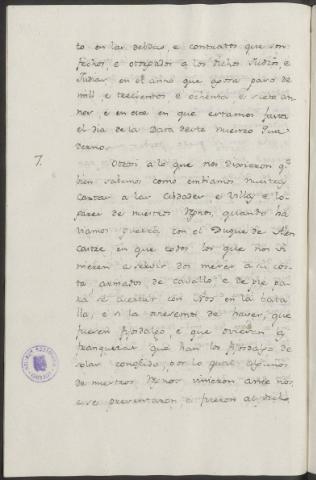 to en las debdas, e contratos que son
fechos, e otorgados a los dichos Judios, e
Judias en el anno que agora paso de
mill, e trecientos, e ochenta, e siete an-
nos, e en este en que estamos fasta
el dia de la Data deste nuestro Qua-
derno.
7. Otrosi a lo que nos dixieron q.e
bien sabiamos como embiamos nuestras
Cartas a las Cibdades e Villas e Lo-
gares de nuestros Regnos, quando ha-
viamos guerra con el Duque de Alen-
castre en que todos los que nos vi-
nieren a servir dos meses a su cos-
ta armados de cavallo, e de pie pa-
ra se acertar con Nos en la bata-
lla, e si la oviesemos de haver, que
fuesen fijosdalgo, e que oviesen las
franquezas que han los fijosdalgo de
solar conoscido, por lo qual algunos
de nuestros Regnos vinieron ante nos,
e se presentaron e fueron al dicho